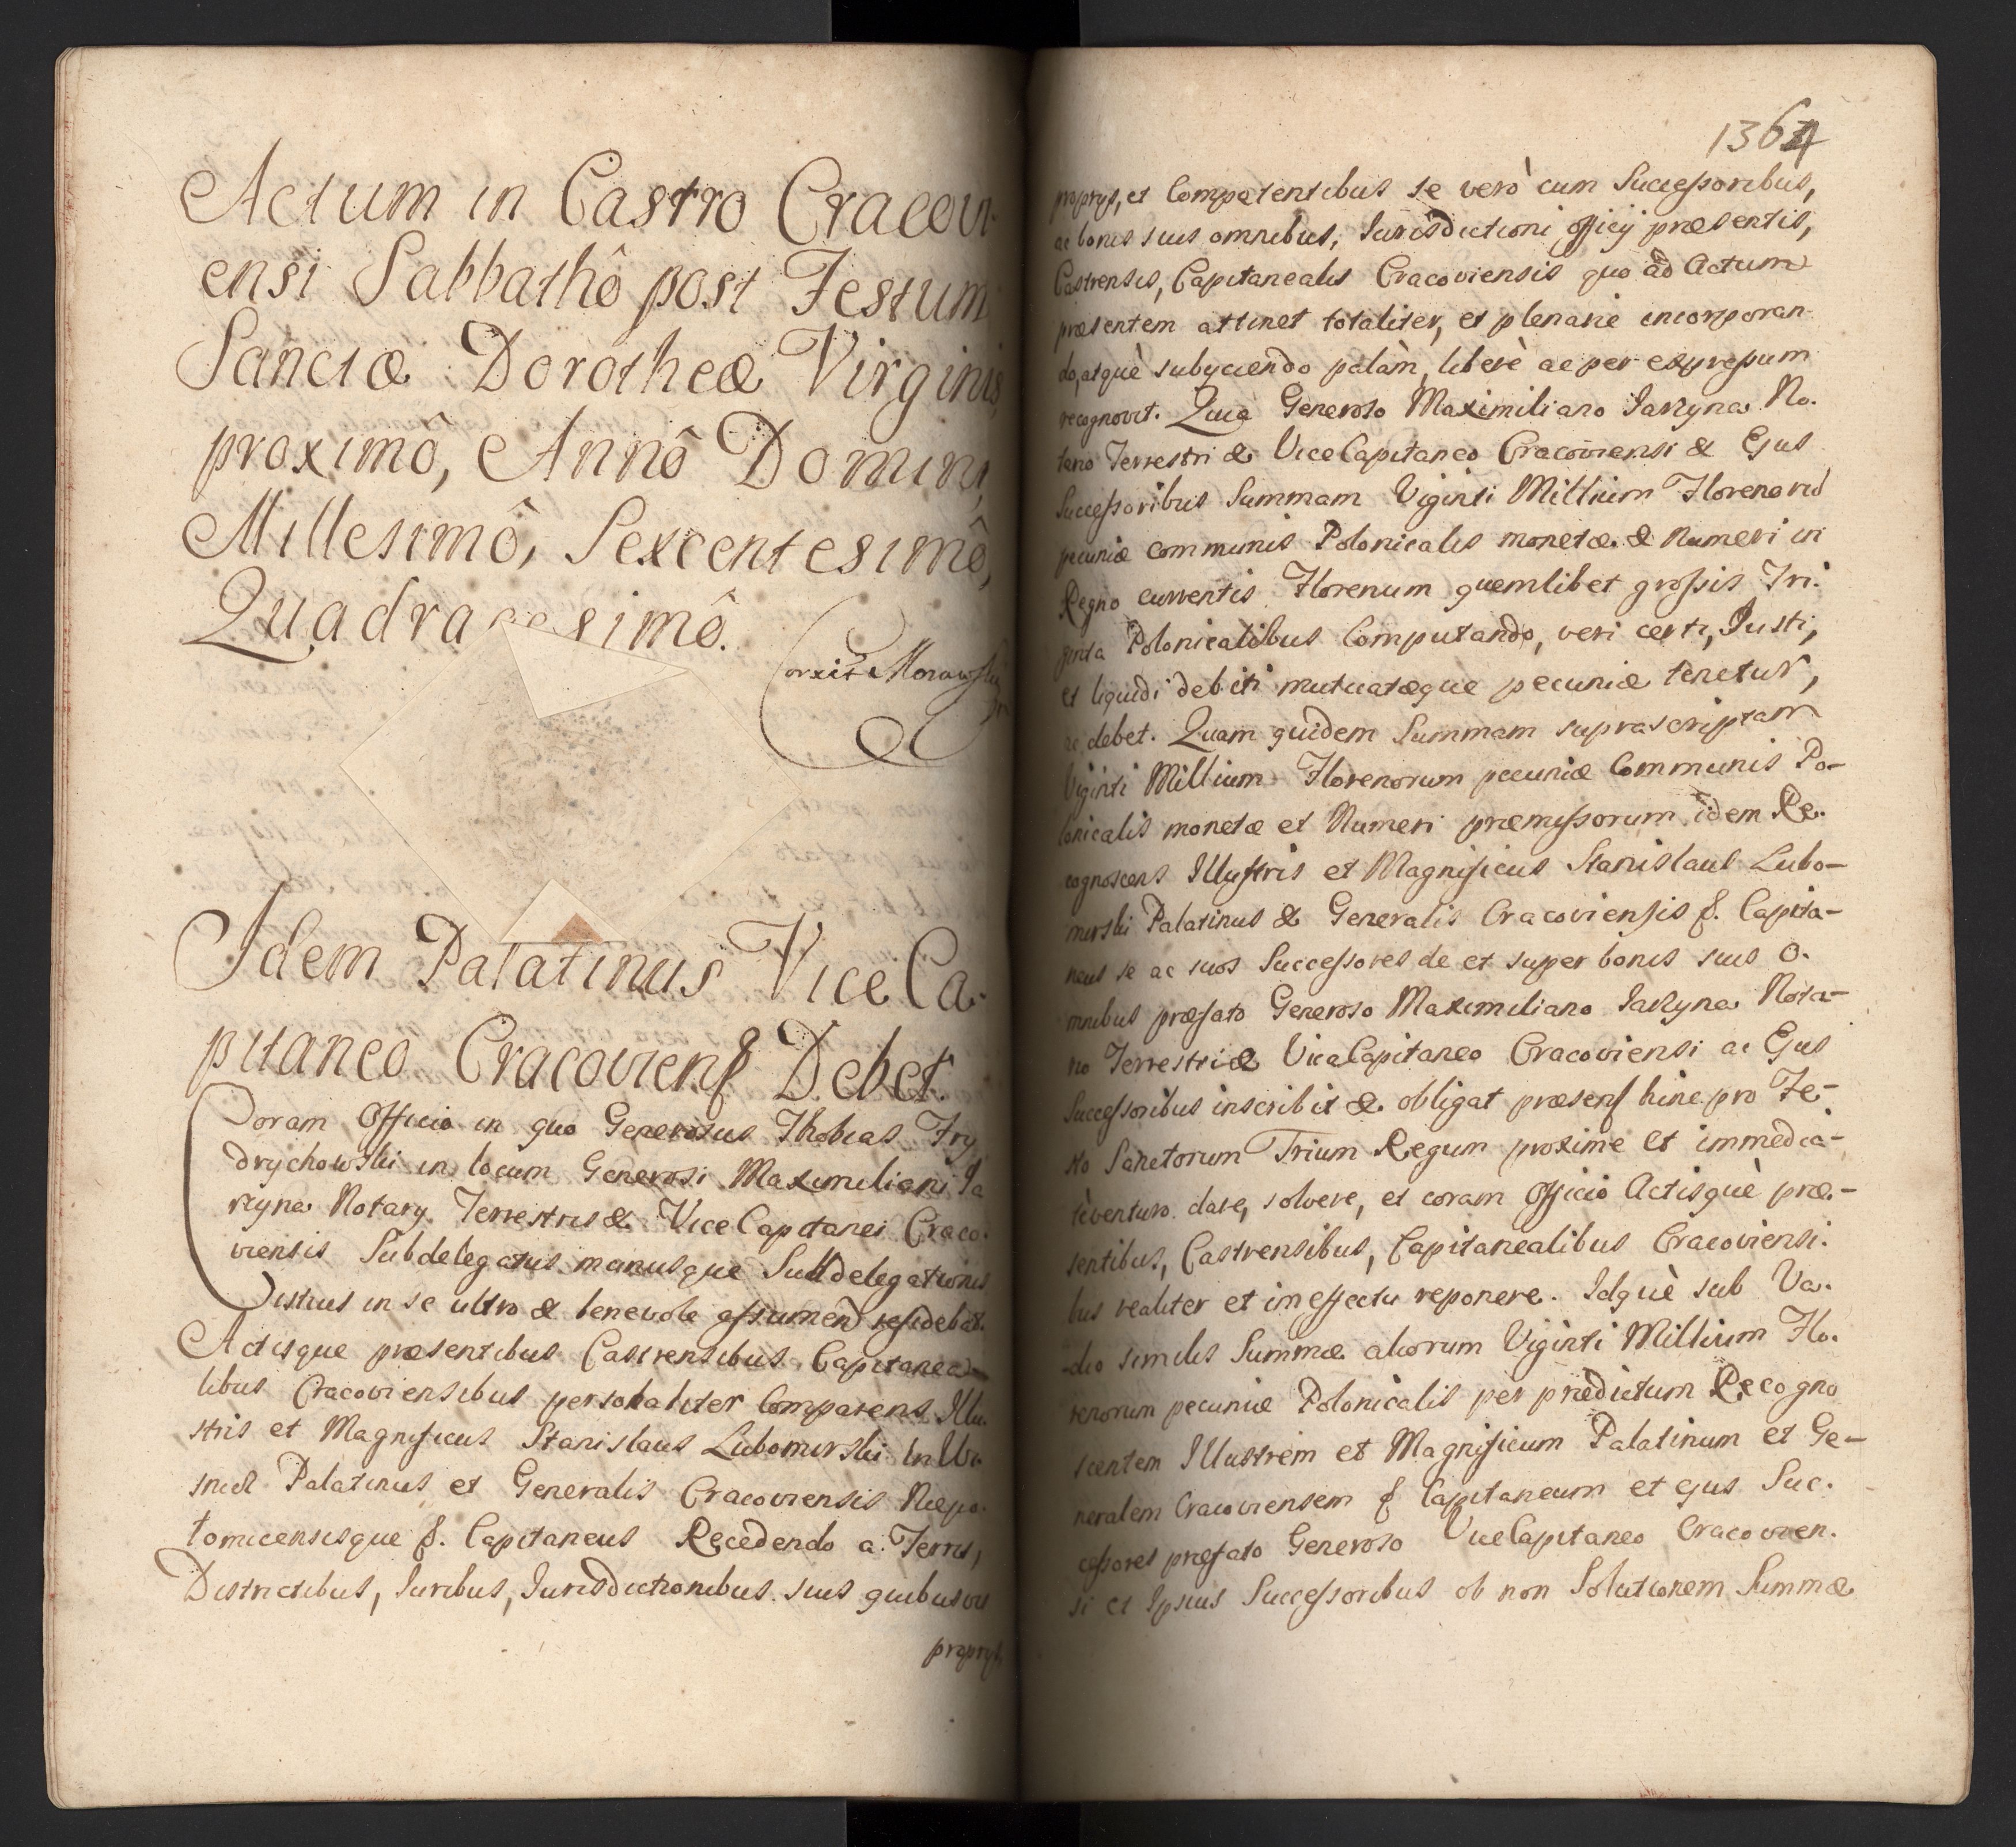 Actum in Castro Cracovi-
ensi Sabbathô post Festum
Sanctæ Dorotheæ Virginis
proximô, Annô Domini,
Millesimô, Sexcentesimô,
Quadragesimô.
Corxit Morawski
Idem Palatinus Vice Ca-
pitaneo Cracovienß Debet.
Coram Officio in quo Generosus Thobias Fry
drychowski in locum Generosi Maximiliani Ja
rzyna Notary Terrestris & Vice Capitanei Craco-
viensis Subdelegatus manusque Subdelegationis
istius in se ultro & benevole assumen residebat.
Actisque præsentibus Castrensibus Capitanea-
libus Cracoviensibus personaliter Comparens Illu-
stris et Magnificus Stanislaus Lubomirski in Wi-
snicz Palatinus et Generalis Cracoviensis Niepo-
tomicensisque &. Capitaneus Recedendo a Terris,
Districtibus, Iuribus, Iurisdictionibus suis quibusvis
proprys,
1364
proprys, et Competentibus se verò cum Successoribus,
ac bonis suis omnibus, Iurisdictioni officij præsentis,
Castrensis, Capitanealis Cracoviensis quo ad Actum
præsentem attinet totaliter, et plenarie incorporan-
do, atquè subyciendo palàm, liberè ac per expressum
recognovit. Quia Generoso Maximiliano Jarzyna No-
tario Terrestri & Vice Capitaneo Cracoviensi & Ejus
Successoribus Summam Viginti Millium Florenorum
pecuniæ communis Polonicalis monetæ & Numeri in
Regno currentis Florenum quemlibet grossis Tri-
ginta Polonicalibus Computando, veri certi, Justi,
et liquidi debiti mutuatæque pecuniæ tenetur,
ac debet. Quam quidem Summam suprascriptam
Viginti Millium Florenorum pecuniæ Communis Po-
lonicalis monetæ et Numeri præmissorum idem Re-
cognoscens Illustris et Magnificus Stanislaus Lubo-
mirski Palatinus & Generalis Cracoviensis &. Capita-
neus se ac suos Successores de et super bonis suis O-
mnibus præfato Generoso Maximiliano Jarzyna Nota-
rio Terrestri & Vice Capitaneo Cracoviensi ac Ejus
Successoribus inscribit & obligat præsenß hinc pro Fe-
sto Sanctorum Trium Regum proxime et immedia-
tè venturo dare, solvere, et coram Officio Actisquè præ-
sentibus, Castrensibus, Capitanealibus Cracoviensi-
bus realiter et in effectu reponere. Idquè sub Va-
dio similis Summæ aliorum Viginti Millium Flo-
renorum pecuniæ Polonicalis per prædictum Recogno
scentem Illustrem et Magnificum Palatinum et Ge-
neralem Cracoviensem & Capitaneum et ejus Suc-
cessores præfato Generoso Vice Capitaneo Cracovien-
si et Ipsius Successoribus ob non Solutionem Summæ